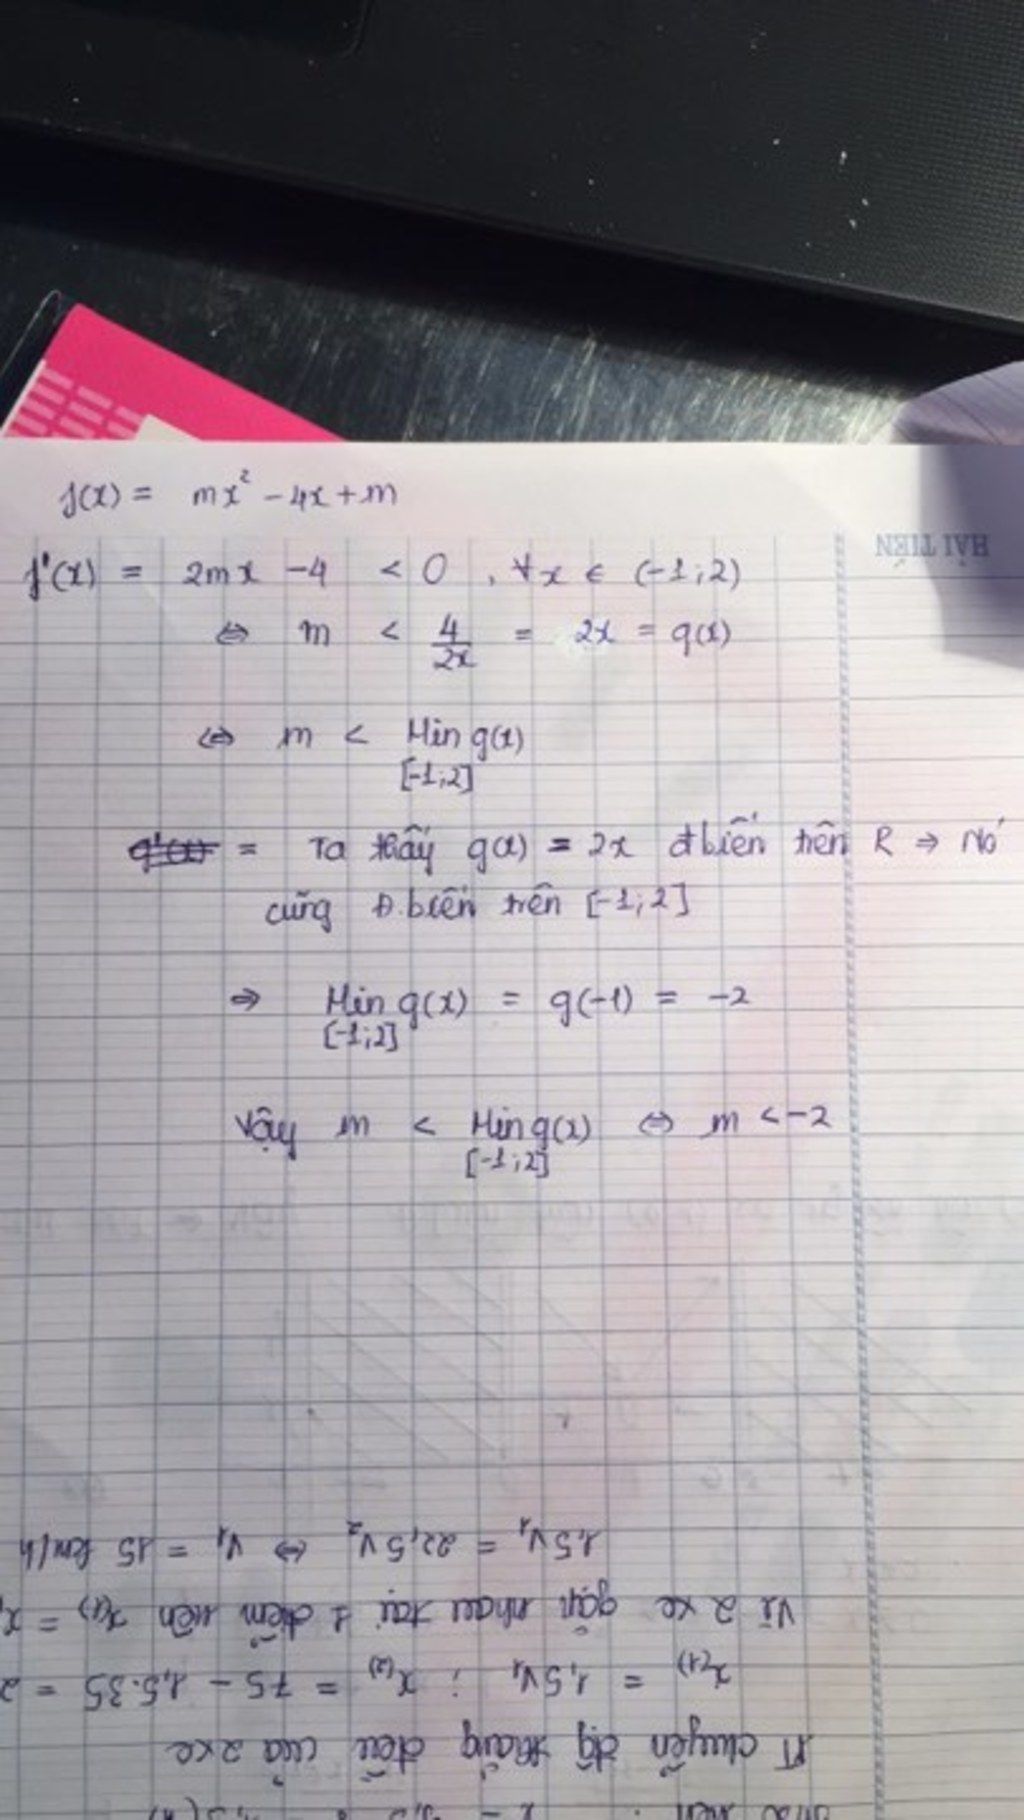 f(x) = mx² - 4x + m
HẢI TIẾN
f'(x) = 2mx - 4 < 0 , ∀x ∈ (-1;2)
⇔ m < 4/2x = 2x = g(x)
⇔ m < Min g(x)
[-1;2]
= Ta thấy g(x) = 2x đbiến trên R ⇒ Nó
cũng Đ.biến trên [-1;2]
⇒ Min g(x) = g(-1) = -2
[-1;2]
Vậy m < Min g(x) ⇔ m < -2
[-1;2]
chuyển độ thẳng đều của 2 xe
x(1) = 1,5V₁ ; x(2) = 75 - 1,5.35 = 2
Vì 2 xe gặp nhau tại 1 điểm nên x(1) = x
1,5V₁ = 22,5V₂ ⇔ V₁ = 15 km/h